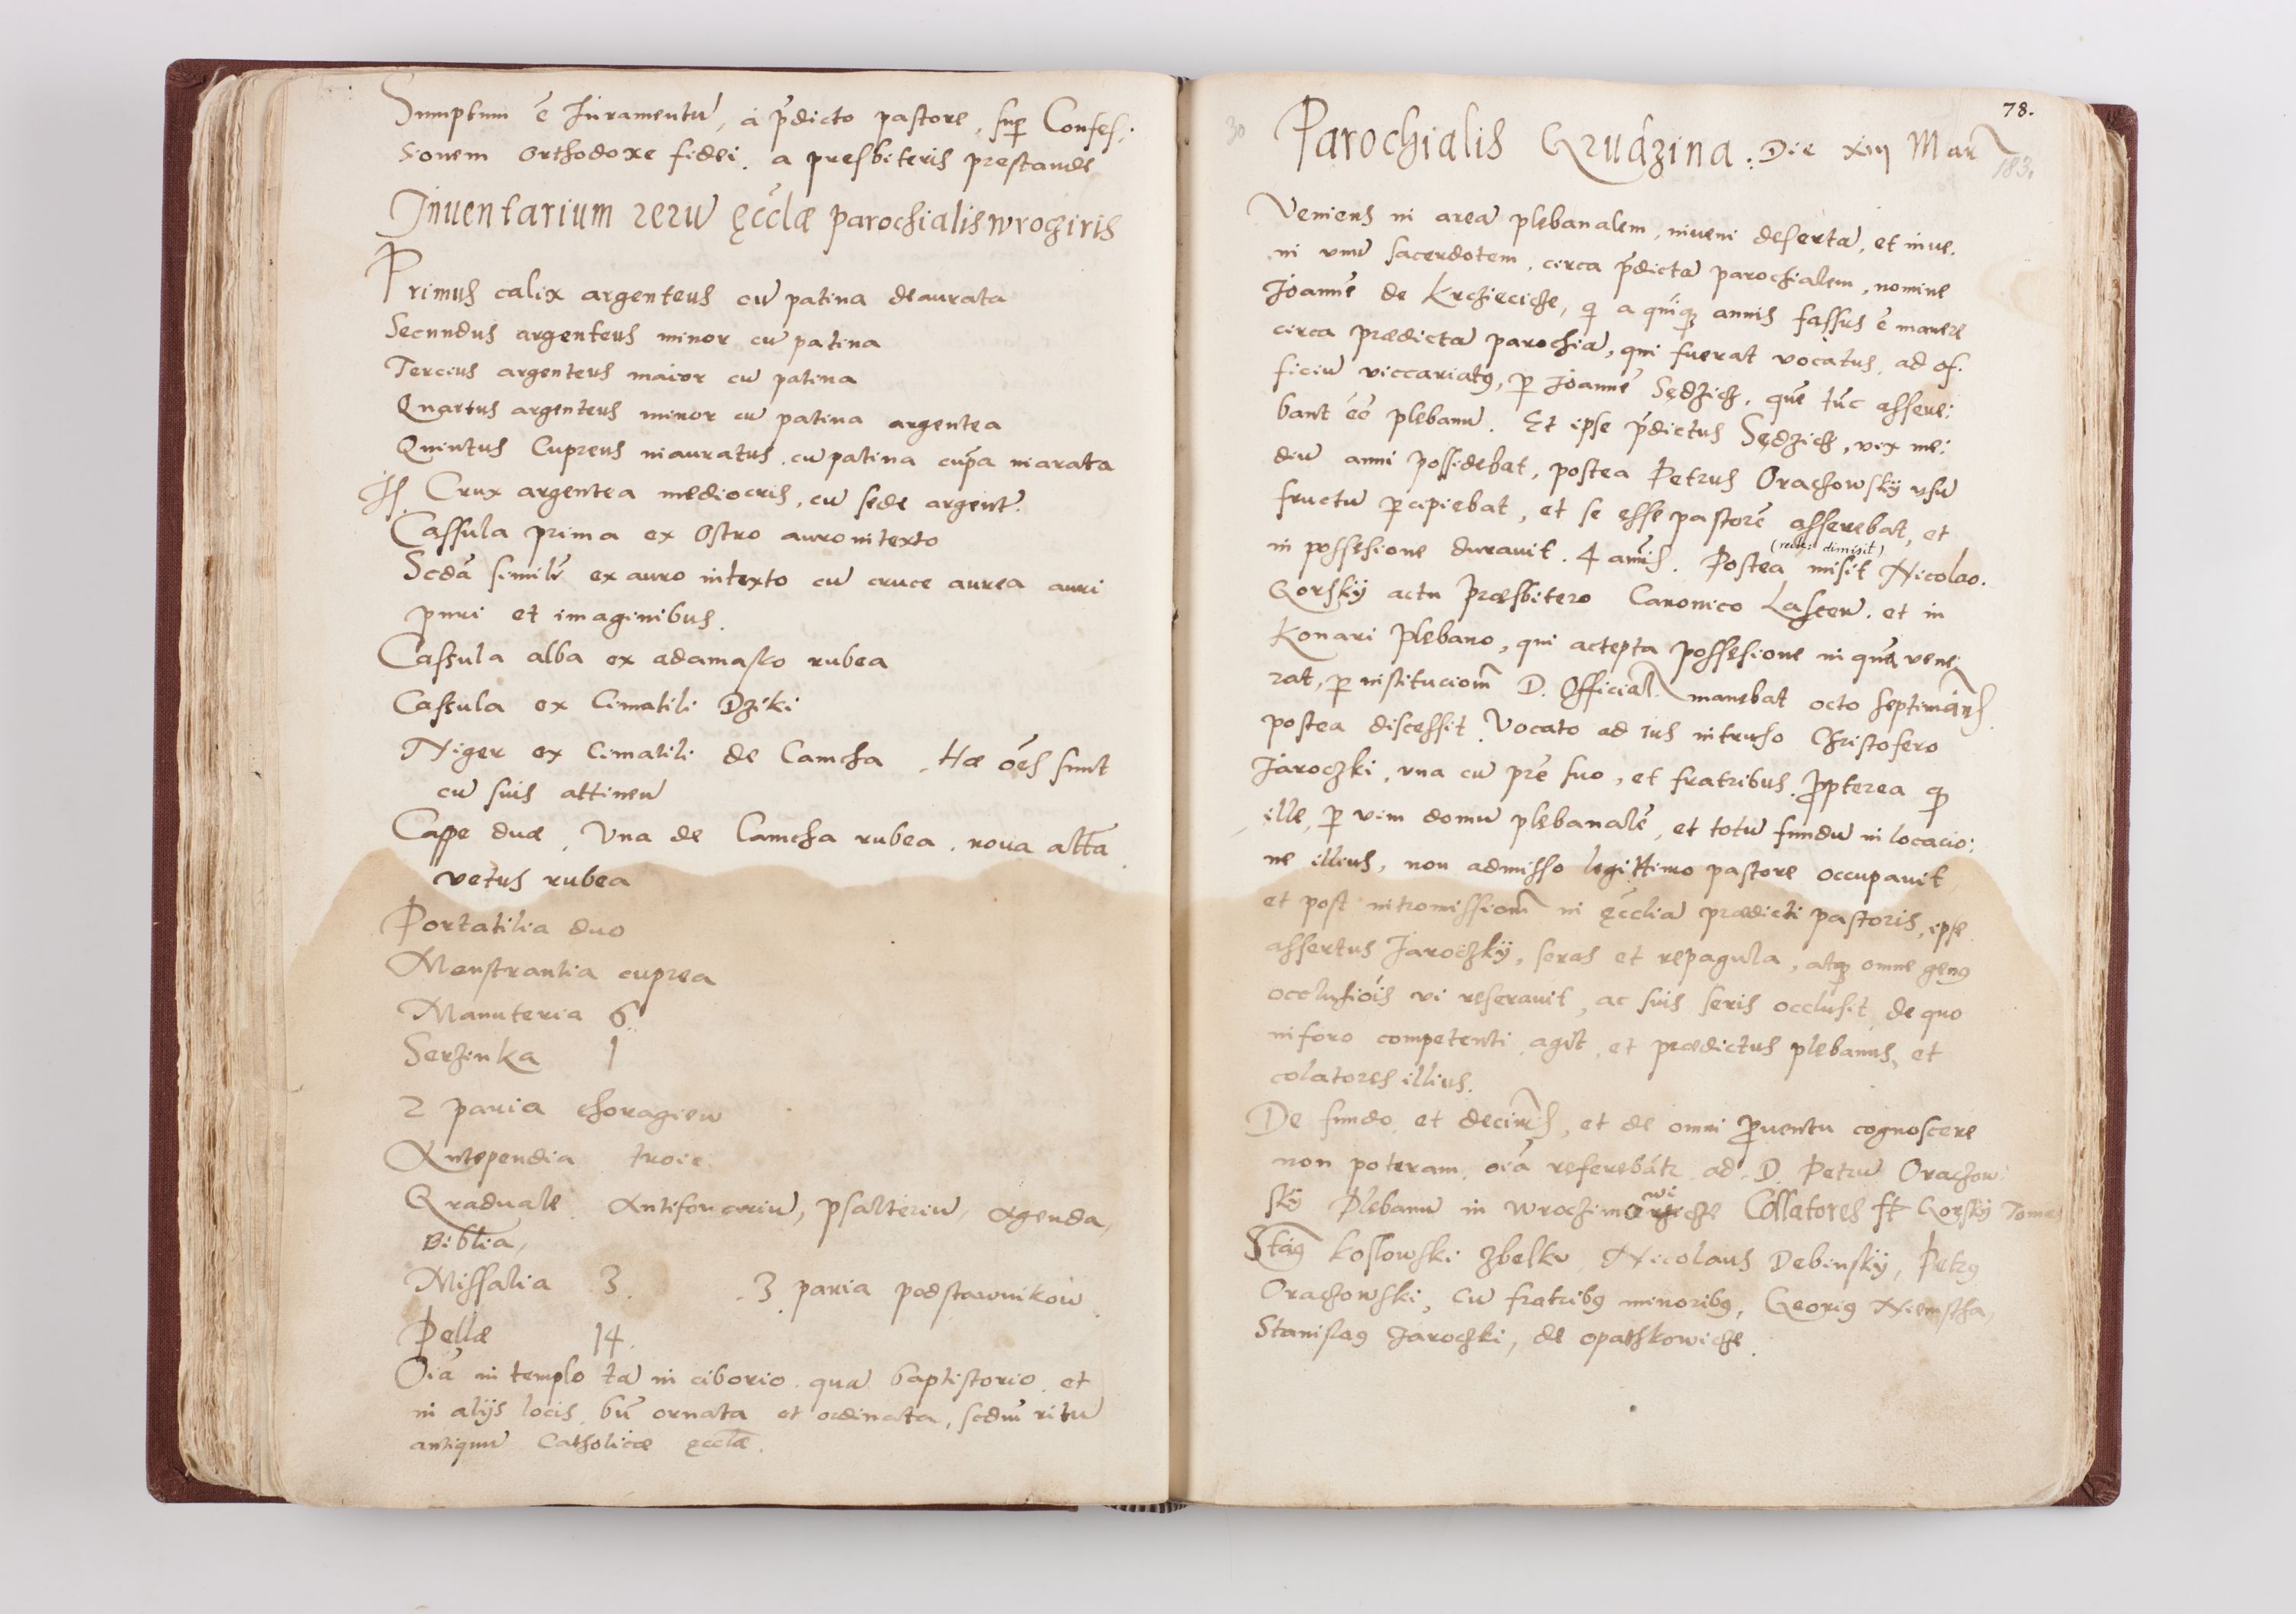 Sumptum ē Juramentū, a p̄dicto pastore, sup Confes:
sionem orthodoxe fidei. a presbiteris prestande
Inuentarium rerū ęcclæ parochialis wrocziris
Primus calix argenteus cū patina deaurata
Secundus argenteus minor cū patina
Tercius argenteus maior cū patina
Quartus argenteus minor cū patina argentea
Quintus Cupreus inauratus, cū patina cup̄a inarata
Crux argentea mediocris, cū sede argent:
Cassula prima ex Ostro auro intexto
Scdā simil̄r ex auro intexto cū cruce aurea auri
puri et imaginibus.
Cassula alba ex adamasko rubea
Cassula ex Cimatili Dziki
Niger ex Cimatili de Camcha. Hæ ōēs sunt
cū suis attinen
Cappe duæ, Una de Camcha rubea, noua altā
vetus rubea
Portatilia duo
Monstrantia cuprea
Manuteria 6.
Serzinka 1
2 paria choragiew
Antependia troie
Graduale Antifonariū, psalteriū, Agenda,
Biblia,
Missalia 3. 3 paria podstawnikow
Pellæ 14.
Oīā in templo tā in ciborio quā baptistorio, et
in alijs locis, bn̄ ornata et ordinata, scdm̄ ritū
antiquū Catholicæ ęcclæ.
78.
30 Parochialis Grudzina: Die xiij Mar
183.
Veniens in areā plebanalem, inueni desertā, et inue.
ni unū sacerdotem, circa p̄dictā parochialem, nomine
Joannē de Krczieciche, q a quīq annis fassus ē manere
circa prædictā parochiā, qui fuerat vocatus, ad of.
ficiū viccariatꝰ, p Joannē Sędzich, quē tūc assere:
bant ēē plebanū. Et ipse p̄dictus Sędzich, vix me:
diū anni possidebat, postea Petrus Orachowskij usū
fructū pcipiebat, et se esse pastorē asserebat, et
(recte: dimisit)
in possesione durauit. 4 annis. Postea misit Nicolao.
Gorskij actu Præsbitero Canonico Lascen. et in
Konari Plebano, qui actepta possesione in quā vene
rat, p instituciom̄ D. Official. manebat octo septimanis.
postea discessit. Vocato ad ius intruso Christofero
Jaroczki, una cū pr̄e suo, et fratribus. propterea q
ille, p vim domū plebanalē, et totū fundū in locacio:
ne illius, non admisso legittimo pastore occupauit,
et post intromissiom̄ in ęccliā prædicti pastoris, ipse
assertus Jaroczkij, seras et repagula, atq omne genꝰ
occlusiōis vi reserauit, ac suis seris occlusit, de quo
in foro competenti agit, et prædictus plebanus, et
colatores illius.
De fundo et decimis, et de omni prouentu cognoscere
non poteram, oīā referebātr ad. D. Petrū Orachow
skij Plebanū in wroczimowiche Collatores st Gorskij Tomas
Stāꝰ koslowski zbelku, Nicolaus Debinskij, Petrꝰ
Orachowski, cū fratribꝰ minoribꝰ, Georiꝰ Niemstha,
Stanislaꝰ Jaroczki, de opathkowicze.